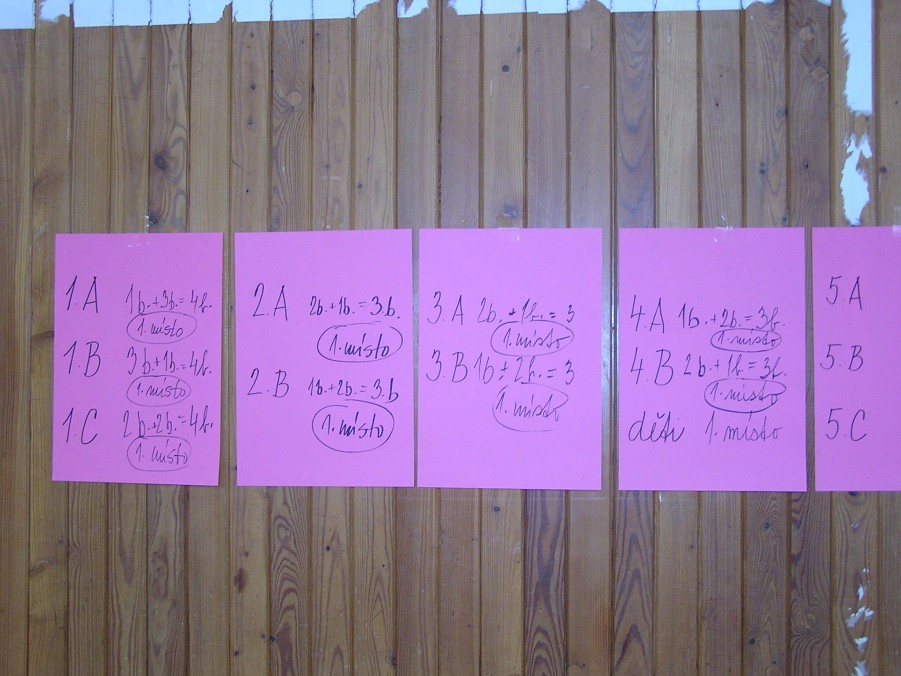 1.A 1b.+3b.=4b.
1. místo
1.B 3b.+1b.=4b.
1. místo
1.C 2b.+2b.=4b.
1. místo
2.A 2b.+1b.=3.b.
1. místo
2.B 1b.+2b.=3.b
1. místo
3.A 2b.+1b.=3
1. místo
3.B 1b+2b.=3
1. místo
4.A 1b.+2b.=3b.
1. místo
4.B 2b.+1b.=3b.
1. místo
děti 1. místo
5.A
5.B
5.C